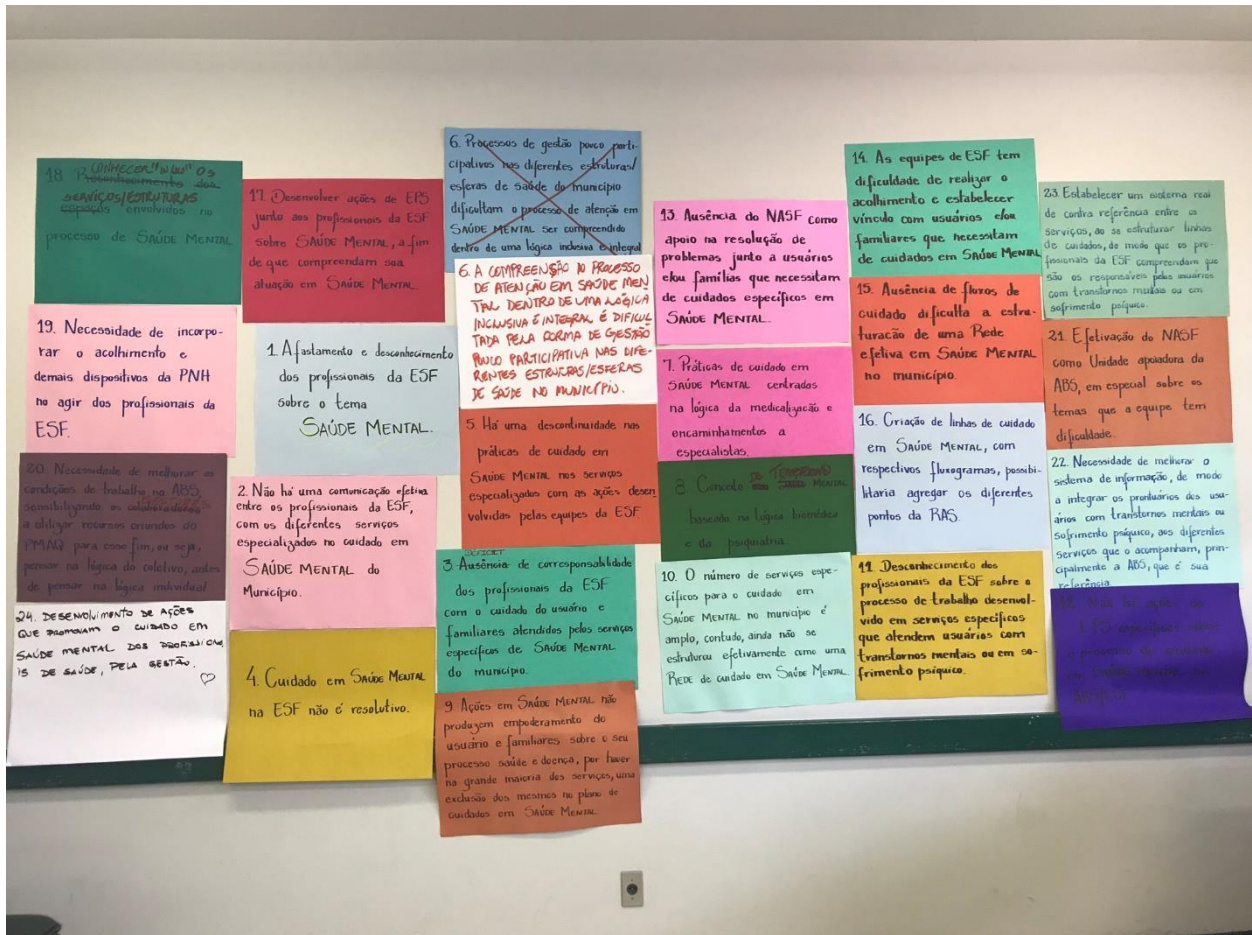 18 CONHECER "IN LOCU" OS
Reconhecimento dos
SERVIÇOS/ESTRUTURAS
espaços envolvidos no
processo de SAÚDE MENTAL
19. Necessidade de incorpo-
rar o acolhimento e
demais dispositivos da PNH
no agir dos profissionais da
ESF.
20. Necessidade de melhorar as
condições de trabalho na ABS,
sensibilizando os
a utilizar recursos oriundos do
PMAQ para esse fim, ou seja,
pensar na lógica do coletivo, antes
de pensar na lógica individual
24. DESENVOLVIMENTO DE AÇÕES
QUE PROMOVAM O CUIDADO EM
SAÚDE MENTAL DOS PROFISSIONA
IS DE SAÚDE, PELA GESTÃO.
17. Desenvolver ações de EPS
junto aos profissionais da ESF
sobre SAÚDE MENTAL, a fim
de que compreendam sua
atuação em SAÚDE MENTAL.
1. Afastamento e desconhecimento
dos profissionais da ESF
sobre o tema
SAÚDE MENTAL.
2. Não há uma comunicação efetiva
entre os profissionais da ESF,
com os diferentes serviços
especializados no cuidado em
SAÚDE MENTAL do
Município.
4. Cuidado em SAÚDE MENTAL
na ESF não é resolutivo.
6. Processos de gestão pouco parti-
cipativos nas diferentes estruturas/
esferas de saúde do município
dificultam o processo de atenção em
SAÚDE MENTAL ser compreendido
dentro de uma lógica inclusiva e integral
6. A COMPREENSÃO DO PROCESSO
DE ATENÇÃO EM SAÚDE MEN
TAL DENTRO DE UMA LÓGICA
INCLUSIVA E INTEGRAL É DIFICUL
TADA PELA FORMA DE GESTÃO
POUCO PARTICIPATIVA NAS DIFE-
RENTES ESTRUTURAS/ESFERAS
DE SAÚDE NO MUNICÍPIO.
5. Há uma descontinuidade nas
práticas de cuidado em
SAÚDE MENTAL nos serviços
especializados com as ações desen
volvidas pelas equipes da ESF
3 Ausência de corresponsabilidade
dos profissionais da ESF
com o cuidado do usuário e
familiares atendidos pelos serviços
específicos de SAÚDE MENTAL
do município.
9. Ações em SAÚDE MENTAL não
produzem empoderamento do
usuário e familiares sobre o seu
processo saúde e doença, por haver
na grande maioria dos serviços, uma
exclusão dos mesmos no plano de
cuidados em SAÚDE MENTAL
13. Ausência do NASF como
apoio na resolução de
problemas junto a usuários
e/ou famílias que necessitam
de cuidados específicos em
SAÚDE MENTAL.
7. Práticas de cuidado em
SAÚDE MENTAL centradas
na lógica da medicalização e
encaminhamentos a
especialistas.
8. Conceito MENTAL
baseado na lógica biomédica
e da psiquiatria.
10. O número de serviços espe-
cíficos para o cuidado em
SAÚDE MENTAL no município é
amplo, contudo, ainda não se
estruturou efetivamente como uma
REDE de cuidado em SAÚDE MENTAL.
14. As equipes de ESF tem
dificuldade de realizar o
acolhimento e estabelecer
vínculo com usuários e/ou
familiares que necessitam
de cuidados em SAÚDE MENTAL
15. Ausência de fluxos de
cuidado dificulta a estru-
turação de uma Rede
efetiva em SAÚDE MENTAL
no município.
16. Criação de linhas de cuidado
em SAÚDE MENTAL, com
respectivos fluxogramas, possibi-
litaria agregar os diferentes
pontos da RAS.
11. Desconhecimento dos
profissionais da ESF sobre o
processo de trabalho desenvol-
vido em serviços específicos
que atendem usuários com
transtornos mentais ou em so-
frimento psíquico.
23. Estabelecer um sistema real
de contra referência entre os
serviços, ao se estruturar linhas
de cuidados, de modo que os pro-
fissionais da ESF compreendam que
são os responsáveis pelos usuários
com transtornos mentais ou em
sofrimento psíquico.
21. Efetivação do NASF
como Unidade apoiadora da
ABS, em especial sobre os
temas que a equipe tem
dificuldade.
22. Necessidade de melhorar o
sistema de informação, de modo
a integrar os prontuários dos usu-
ários com transtornos mentais ou
sofrimento psíquico, aos diferentes
serviços que o acompanham, prin-
cipalmente a ABS, que é sua
referência.
12. Não há ações de
EPS